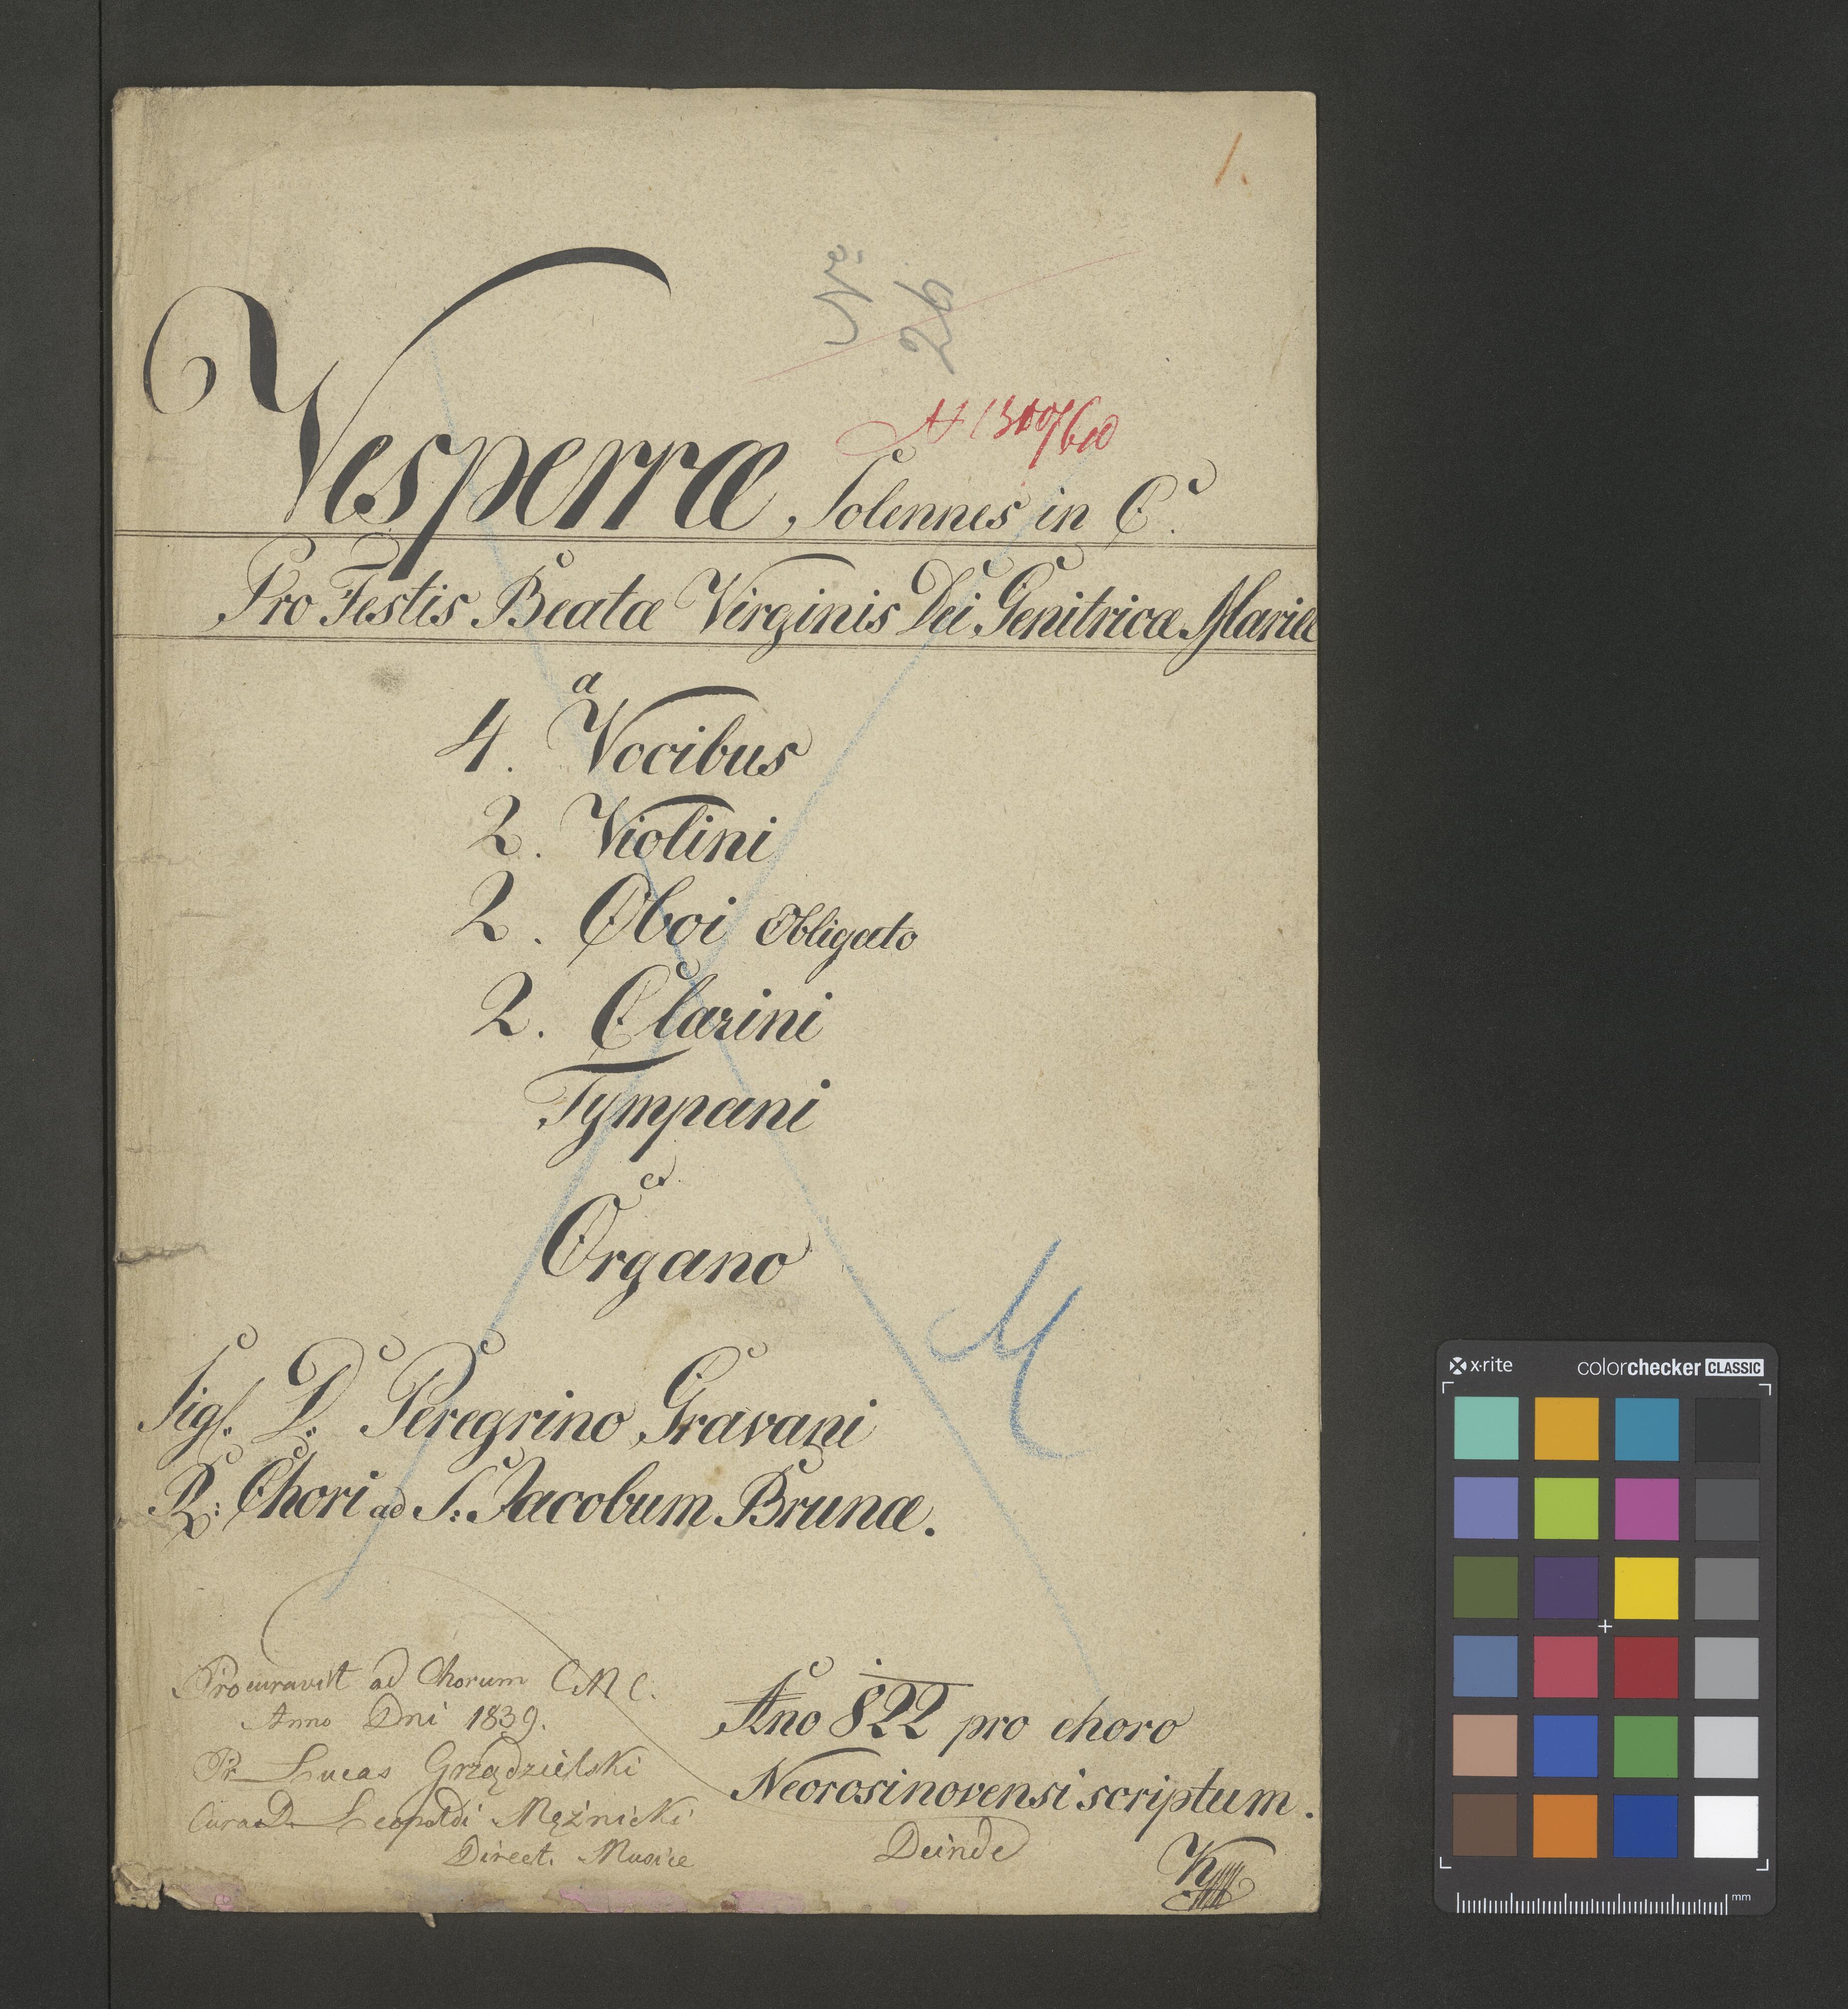 1.
No. 26
N 1300/60
Vesperræ Solennes in C.
Pro Festis Beatæ Virginis Dei Genitricæ Mariæ
a
4. Vocibus
2. Violini
2. Oboi Obligato
2. Clarini
Tympani
et
Organo
M
Sigr. D. Peregrino Gravani
R: Chori ad S: Jacobum Brunæ.
Procuravit ad Chorum CMC.
Anno Dni 1839.
Pr Lucas Grządzielski
Cura D. Leopoldi Mężnicki
Direct. Musice
Año 822 pro choro
Neorosinovensi scriptum.
Deinde
x·rite colorchecker CLASSIC
mm